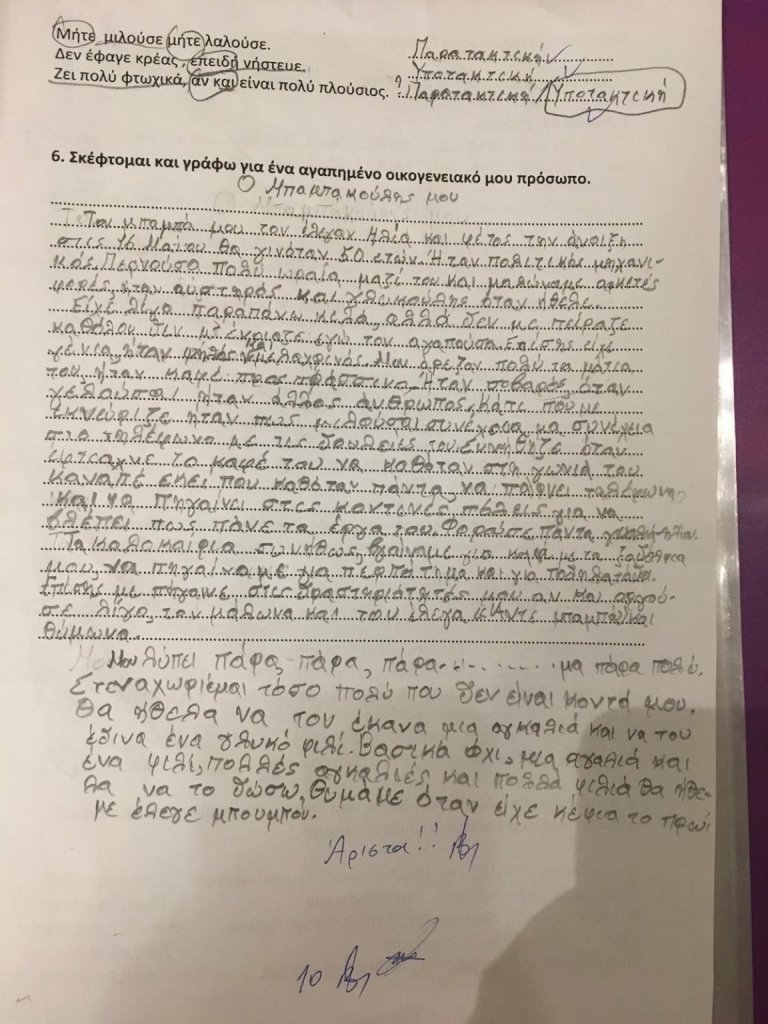 Μήτε μιλούσε μήτε λαλούσε. Παρατακτική
Δεν έφαγε κρέας, επειδή νήστευε. Υποτακτική
Ζει πολύ φτωχικά, αν και είναι πολύ πλούσιος. ? Παρατακτική / Υποτακτική
6. Σκέφτομαι και γράφω για ένα αγαπημένο οικογενειακό μου πρόσωπο.
Ο Μπαμπακούλης μου
Τον μπαμπά μου τον έλεγαν Ηλία και φέτος την άνοιξη
στις 16 Μαΐου θα γινόταν 50 ετών. Ήταν πολιτικός μηχανι-
κός. Περνούσα πολύ ωραία μαζί του και μαλώναμε αρκετές
φορές, ήταν αυστηρός και γλυκούλης όταν ήθελε.
Είχε λίγα παραπάνω κιλά, αλλά δεν με πείραζε
καθόλου δεν με ένοιαζε εγώ τον αγαπούσα. Επίσης είχε
γένια, ήταν ψηλός και μελαχρινός. Μου άρεζαν πολύ τα μάτια
του ήταν καφέ προς πράσινα. Ήταν σοβαρός, όταν
γελούσαι ήταν άλλος άνθρωπος, κάτι που με
εκνεύριζε ήταν πως μιλούσαι συνέχεια μα συνέχεια
στο τηλέφωνο με τις δουλειές του. Συνήθιζε όταν
έφτιαχνε το καφέ του να καθόταν στη γωνιά του
καναπέ εκεί που καθόταν πάντα, να παίρνει τηλέφωνο
και να πηγαίνει στις κοντινές πόλεις για να
βλέπει πως πάνε τα έργα του. Φορούσε πάντα γυαλιά ηλίου.
Τα καλοκαίρια συνήθως, βγαίναμε για καφέ με τα ξαδέλφια
μου, να πηγαίναμε για περπάτημα και για ποδηλατάδα.
Επίσης με πήγαινε στις δραστηριότητές μου αν και αργού-
σε λίγο, τον μάλωνα και του έλεγα «Άντε μπαμπά!» και
θύμωνα.
Μου λύπει πάρα, πάρα, πάρα........... μα πάρα πολύ.
Στεναχωριέμαι τόσο πολύ που δεν είναι κοντά μου.
Θα ήθελα να του έκανα μια αγκαλιά και να του
έδινα ένα γλυκό φιλί. Βασικά όχι, μια αγαλιά και
ένα φιλί, πολλές αγκαλιές και πολλά φιλιά θα ήθε-
λα να το δώσω. Θυμάμε όταν είχε κέφια το πρωί
με έλεγε μπουμπού.
Άριστα!!
10